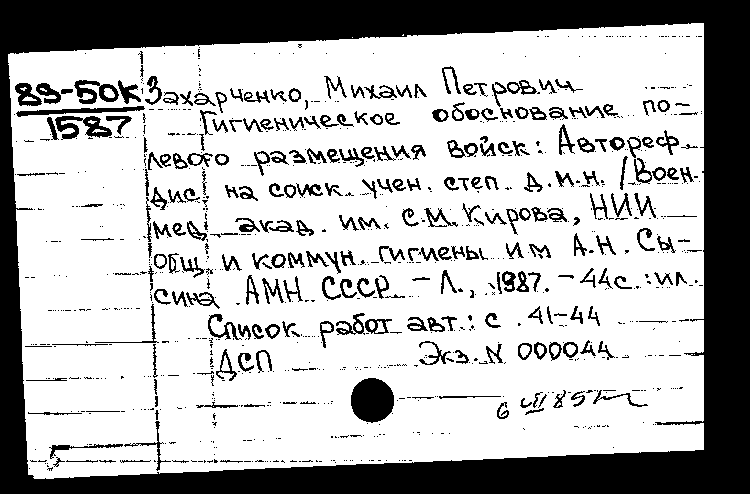 89-50К Захарченко, Михаил Петрович
1587 Гигиеническое обоснование по-
левого размещения войск: Автореф.
дис. на соиск. учен. степ. д.м.н. /Воен.
мед. акад. им. С.М. Кирова, НИИ
общ. и коммун. гигиены им А.Н. Сы-
сина АМН СССР. – Л., 1987. – 44с.: ил.
Список работ авт.: с. 41-44
ДСП Экз. N 000044